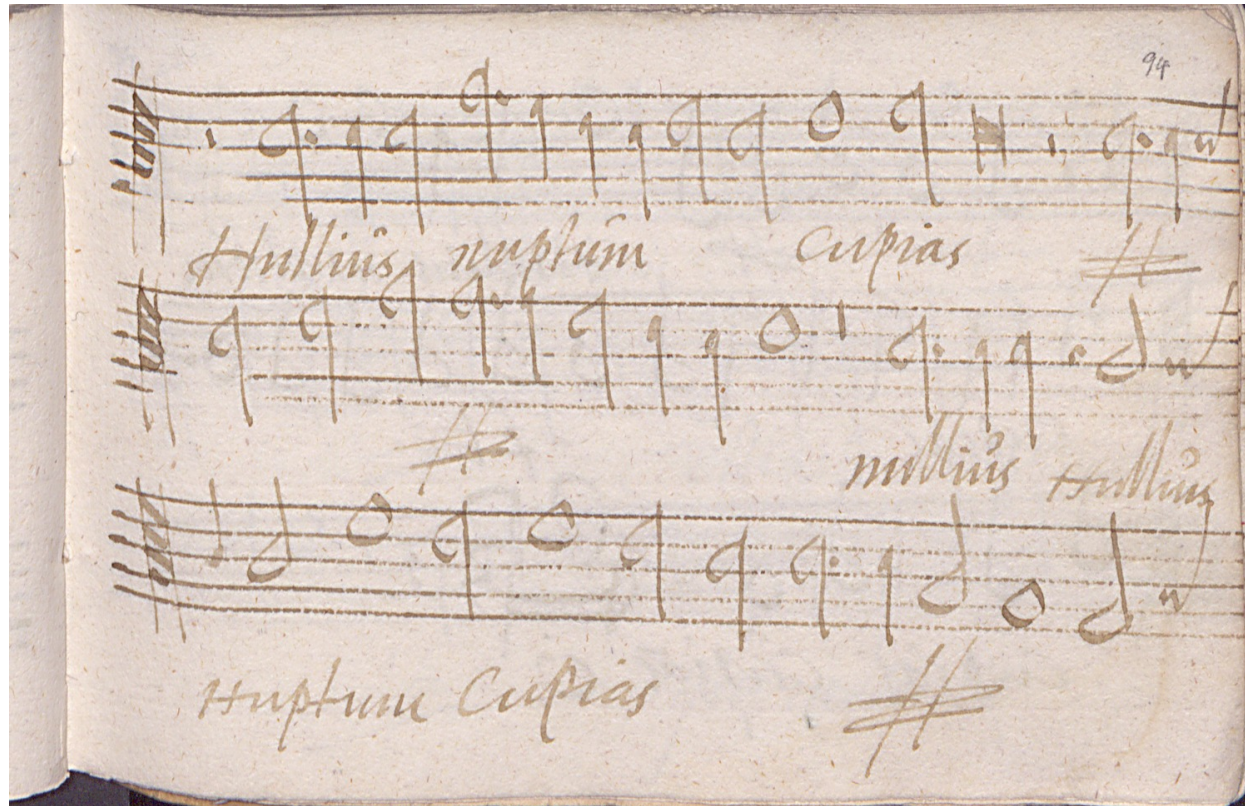 94
Nullius nuptum Cupias
nullius Nullius
Nuptum Cupias